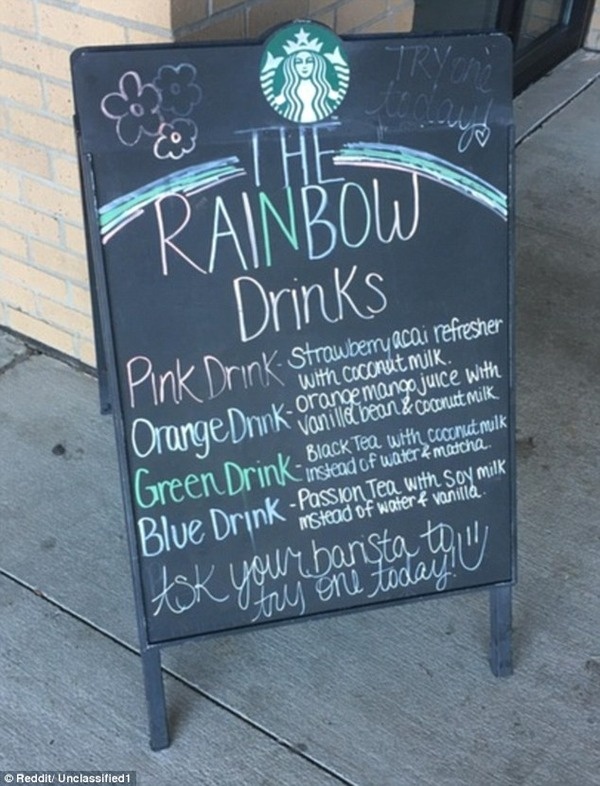 TRY one
today!
THE
RAINBOW
Drinks
Pink Drink - Strawberry acai refresher
with coconut milk.
Orange Drink - orange mango juice with
vanilla bean & coconut milk
Green Drink - Black Tea with coconut milk
instead of water & matcha.
Blue Drink - Passion Tea with soy milk
instead of water & vanilla.
Ask your barista to
try one today!!!
© Reddit/ Unclassified1